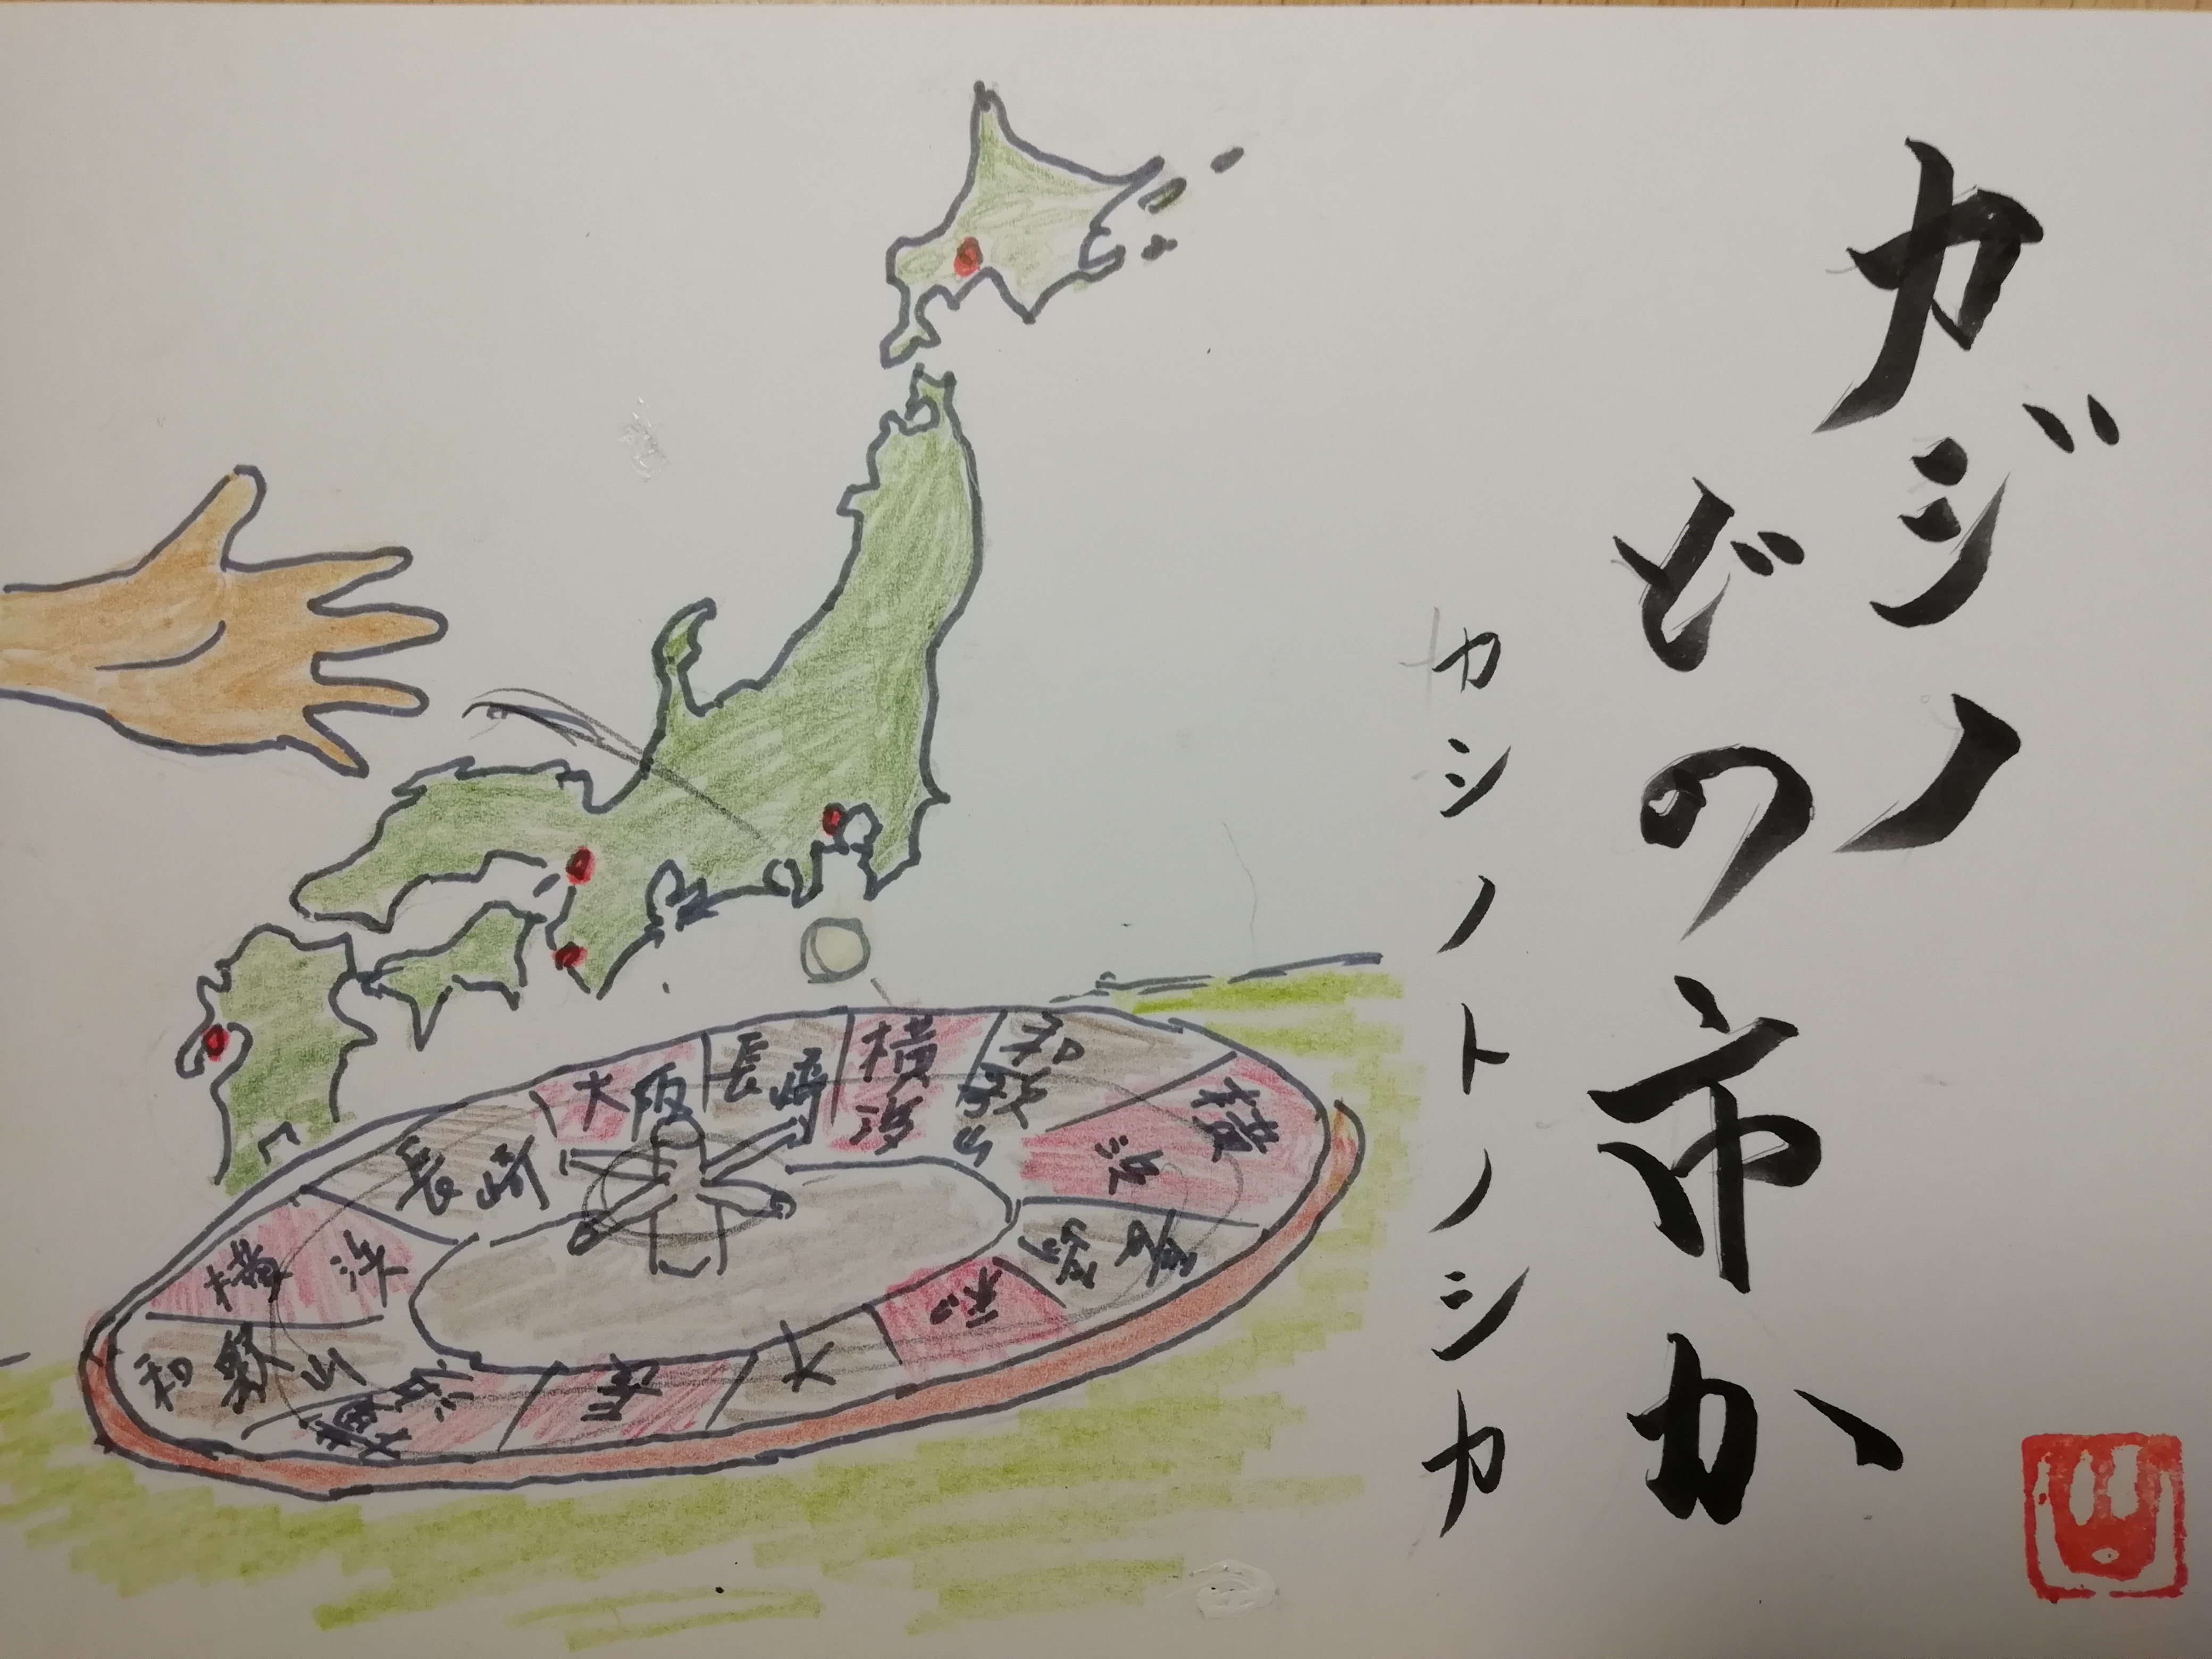 カジノ
どの市か
カシノトノシカ
大阪
長崎
横浜
和歌山
横浜
長崎
横浜
和歌山
大
和